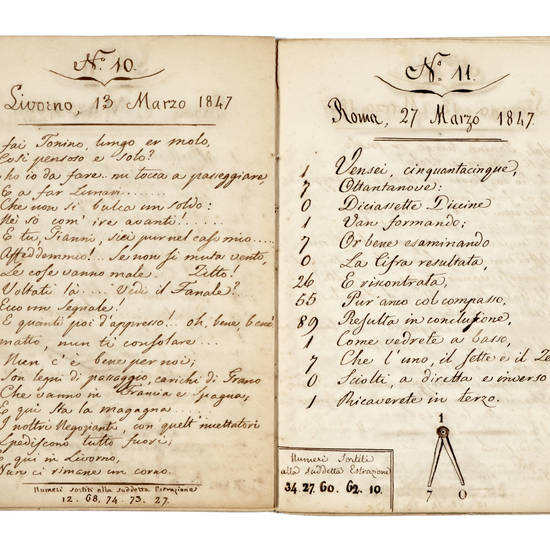 N.º 10.
Livorno, 13 Marzo 1847
fai Tonino, lungo er molo,
Così pensoso e solo?
ho io da fare.. mi tocca a passeggiare,
E a far Lunari.......
Che non si bulca un soldo:
Nè so com' ire avanti!......
E tu, Gianni, siei pur nel caso mio.....
Affeddemmio!.. Se non si muta vento,
Le cose vanno male. Zitto!
Voltati là..... Vedi il Fanale?..
Ecco un Segnale!
E quanti poi d'appresso! oh, bene, bene
matto, non ti consolare...
c'è bene per noi;
Son legni di passaggio, carichi di Grano
Che vanno in Francia e Spagna;
E qui sta la magagna....
I nostri Negozianti, con quelli
Spediscono tutto fuori;
E qui in Livorno,
Nun ci rimane un corno.
Numeri sortiti alla suddetta Estrazione
12. 68. 74. 73. 27.
N.º 11.
Roma, 27 Marzo 1847
1 Vensei, cinquantacinque,
7 Ottantanove:
0 Diciassette Diecine
1 Van formando;
7 Or bene esaminando
0 La Cifra resultata,
26 E riscontrata,
55 Pur anco col compasso,
89 Resulta in conclusione,
1 Come vedrete a basso,
7 Che l'uno, il sette e il Ze
0 Sciolti a diretta e inverso
1 Ricaverete in terzo.
1
7 0
Numeri Sortiti
alla suddetta Estrazione
34. 27. 60. 62. 10.